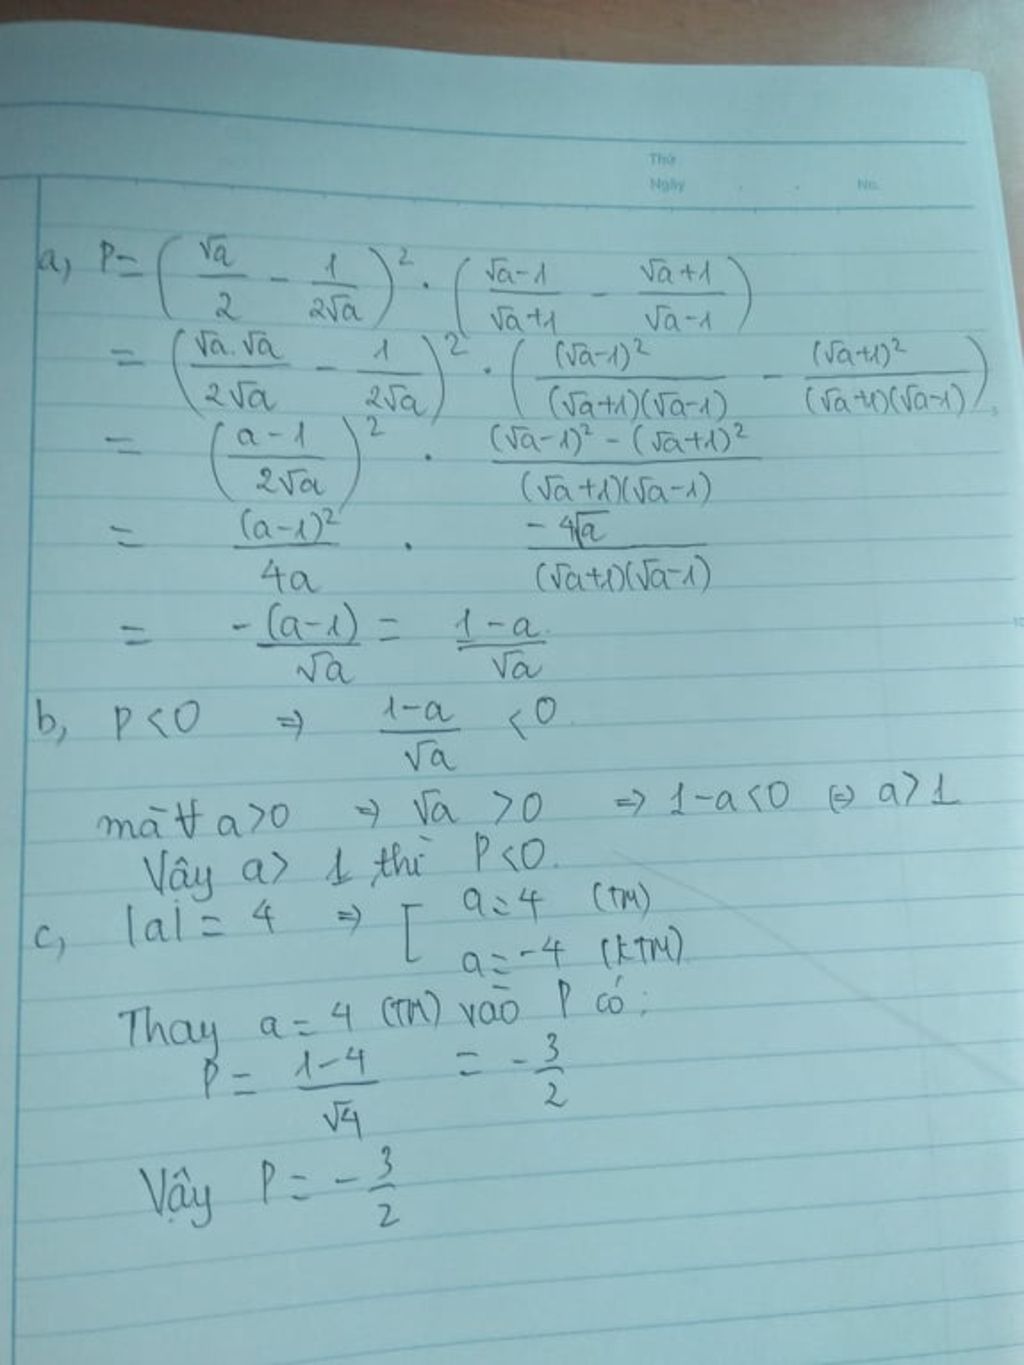 Thứ
Ngày . . No.
a, P = (√a/2 - 1/2√a)² . (√a-1/√a+1 - √a+1/√a-1)
= (√a.√a/2√a - 1/2√a)² . ((√a-1)²/(√a+1)(√a-1) - (√a+1)²/(√a+1)(√a-1))
= (a-1/2√a)² . (√a-1)² - (√a+1)²/(√a+1)(√a-1)
= (a-1)²/4a . -4√a/(√a+1)(√a-1)
= -(a-1)/√a = 1-a/√a
b, P<0 => 1-a/√a <0
mà ∀ a>0 => √a >0 => 1-a<0 <=> a>1
Vậy a> 1 thì P<0.
c, |a| = 4 => [ a=4 (TM)
a=-4 (KTM)
Thay a=4 (TM) vào P có:
P = 1-4/√4 = -3/2
Vậy P = -3/2